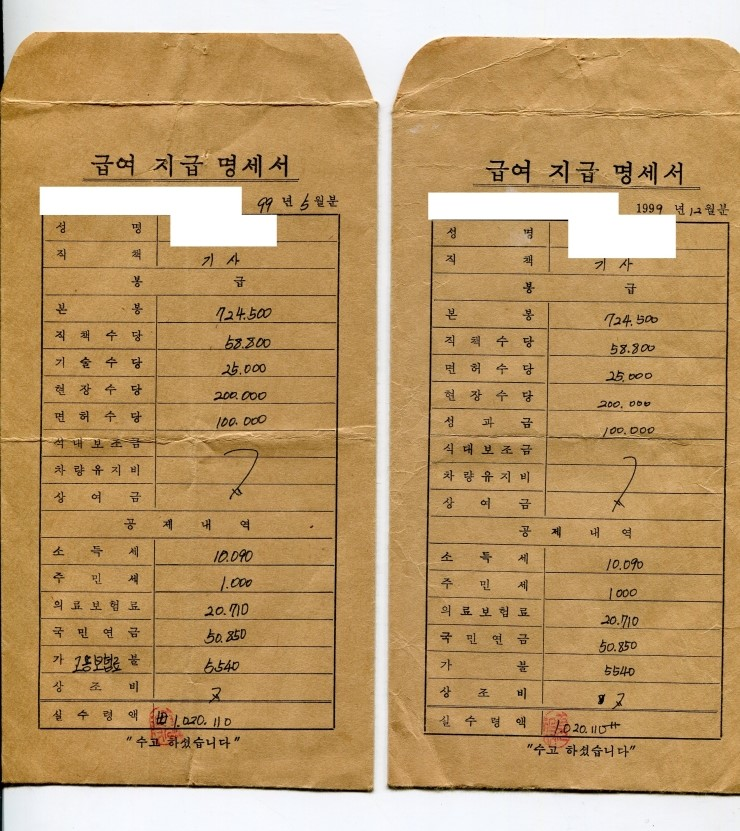 급여 지급 명세서
99 년 5 월분
성 명
직 책 기사
봉 급
본 봉 724.500
직책수당 58.800
기술수당 25.000
현장수당 200.000
면허수당 100.000
식대보조금
차량유지비
상여금
공제내역
소득세 10.090
주민세 1.000
의료보험료 20.710
국민연금 50.850
가 고용보험료 불 5540
상조비
실수령액 1.020.110
"수고 하셨습니다"
급여 지급 명세서
1999 년 12 월분
성 명
직 책 기사
봉 급
본 봉 724.500
직책수당 58.800
면허수당 25.000
현장수당 200.000
성과금 100.000
식대보조금
차량유지비
상여금
공제내역
소득세 10.090
주민세 1000
의료보험료 20.710
국민연금 50.850
가 불 5540
상조비
실수령액 1.020.110
"수고 하셨습니다"